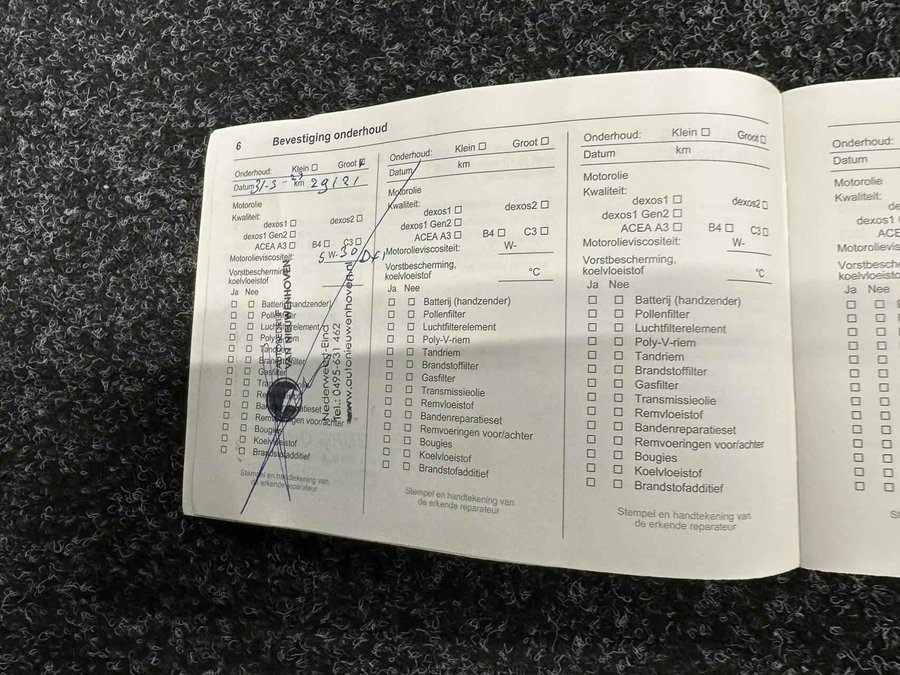 6 Bevestiging onderhoud
Onderhoud: Klein ☐ Groot ☐
Datum 31-3-23 km 29121
Motorolie
Kwaliteit:
dexos1 ☐ dexos2 ☐
dexos1 Gen2 ☐
ACEA A3 ☐ B4 ☐ C3 ☐
Motorolieviscositeit: 5 W-30
Vorstbescherming,
koelvloeistof
Ja Nee
☐ ☐ Batterij (handzender)
☐ ☐ Pollenfilter
☐ ☐ Luchtfilterelement
☐ ☐ Poly-V-riem
☐ ☐ Tandriem
☐ ☐ Brandstoffilter
☐ ☐ Gasfilter
☐ ☐ Transmissieolie
☐ ☐ Remvloeistof
☐ ☐ Bandenreparatieset
☐ ☐ Remvoeringen voor/achter
☐ ☐ Bougies
☐ ☐ Koelvloeistof
☐ ☐ Brandstofadditief
Stempel en handtekening van
de erkende reparateur
AUTOBEDRIJF
VAN NIEUWENHOVEN
Nederweert-Eind
Tel.: 0495-631 462
www.autonieuwenhoven.nl
Onderhoud: Klein ☐ Groot ☐
Datum km
Motorolie
Kwaliteit:
dexos1 ☐ dexos2 ☐
dexos1 Gen2 ☐
ACEA A3 ☐ B4 ☐ C3 ☐
Motorolieviscositeit: W-
Vorstbescherming,
koelvloeistof °C
Ja Nee
☐ ☐ Batterij (handzender)
☐ ☐ Pollenfilter
☐ ☐ Luchtfilterelement
☐ ☐ Poly-V-riem
☐ ☐ Tandriem
☐ ☐ Brandstoffilter
☐ ☐ Gasfilter
☐ ☐ Transmissieolie
☐ ☐ Remvloeistof
☐ ☐ Bandenreparatieset
☐ ☐ Remvoeringen voor/achter
☐ ☐ Bougies
☐ ☐ Koelvloeistof
☐ ☐ Brandstofadditief
Stempel en handtekening van
de erkende reparateur
Onderhoud: Klein ☐ Groot ☐
Datum km
Motorolie
Kwaliteit:
dexos1 ☐ dexos2 ☐
dexos1 Gen2 ☐
ACEA A3 ☐ B4 ☐ C3 ☐
Motorolieviscositeit: W-
Vorstbescherming,
koelvloeistof °C
Ja Nee
☐ ☐ Batterij (handzender)
☐ ☐ Pollenfilter
☐ ☐ Luchtfilterelement
☐ ☐ Poly-V-riem
☐ ☐ Tandriem
☐ ☐ Brandstoffilter
☐ ☐ Gasfilter
☐ ☐ Transmissieolie
☐ ☐ Remvloeistof
☐ ☐ Bandenreparatieset
☐ ☐ Remvoeringen voor/achter
☐ ☐ Bougies
☐ ☐ Koelvloeistof
☐ ☐ Brandstofadditief
Stempel en handtekening van
de erkende reparateur
Onderhoud:
Datum
Motorolie
Kwaliteit:
dexos1
dexos1 G
ACE
Motorolievis
Vorstbesch
koelvloeisto
Ja Nee
St